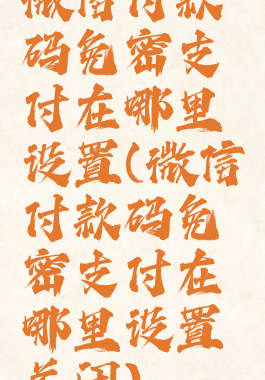 微信付款
码免密支
付在哪里
设置(微信
付款码免
密支付在
哪里设置
关闭)